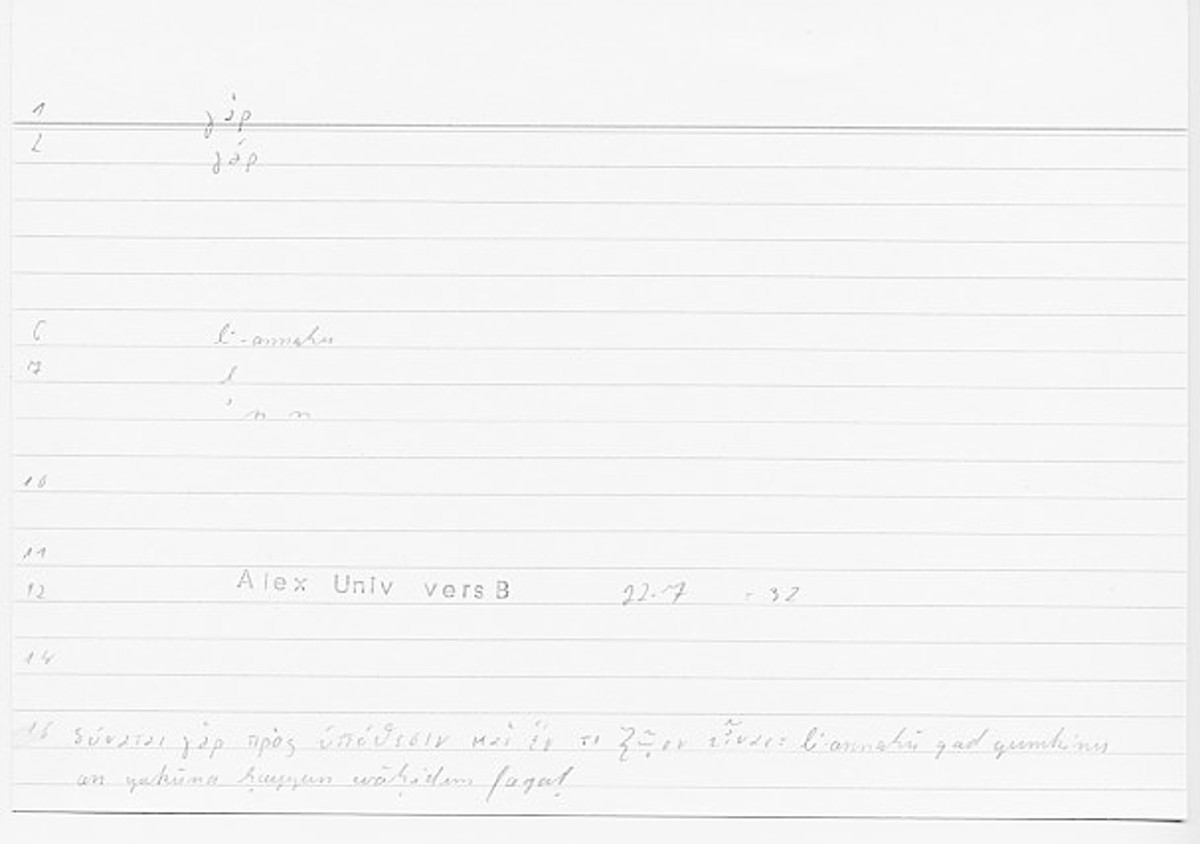 1 γὰρ
2 γάρ
6 li-annahu
7 l
ʾ n n
10
11
12 Alex Univ vers B 22.7 - 32
14
15 δύναται γὰρ πρὸς ὑπόθεσιν καὶ ἕν τι ζῷον εἶναι: li-annahū qad yumkinu
an yakūna ḥayyun wāḥidun faqaṭ